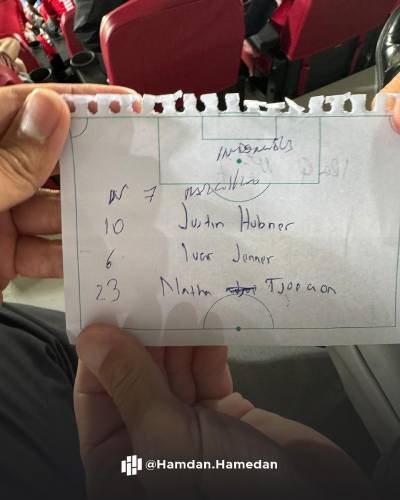 7 Marcelino
10 Justin Hubner
6 Ivar Jenner
23 Natha Tjoeaon
@Hamdan.Hamedan